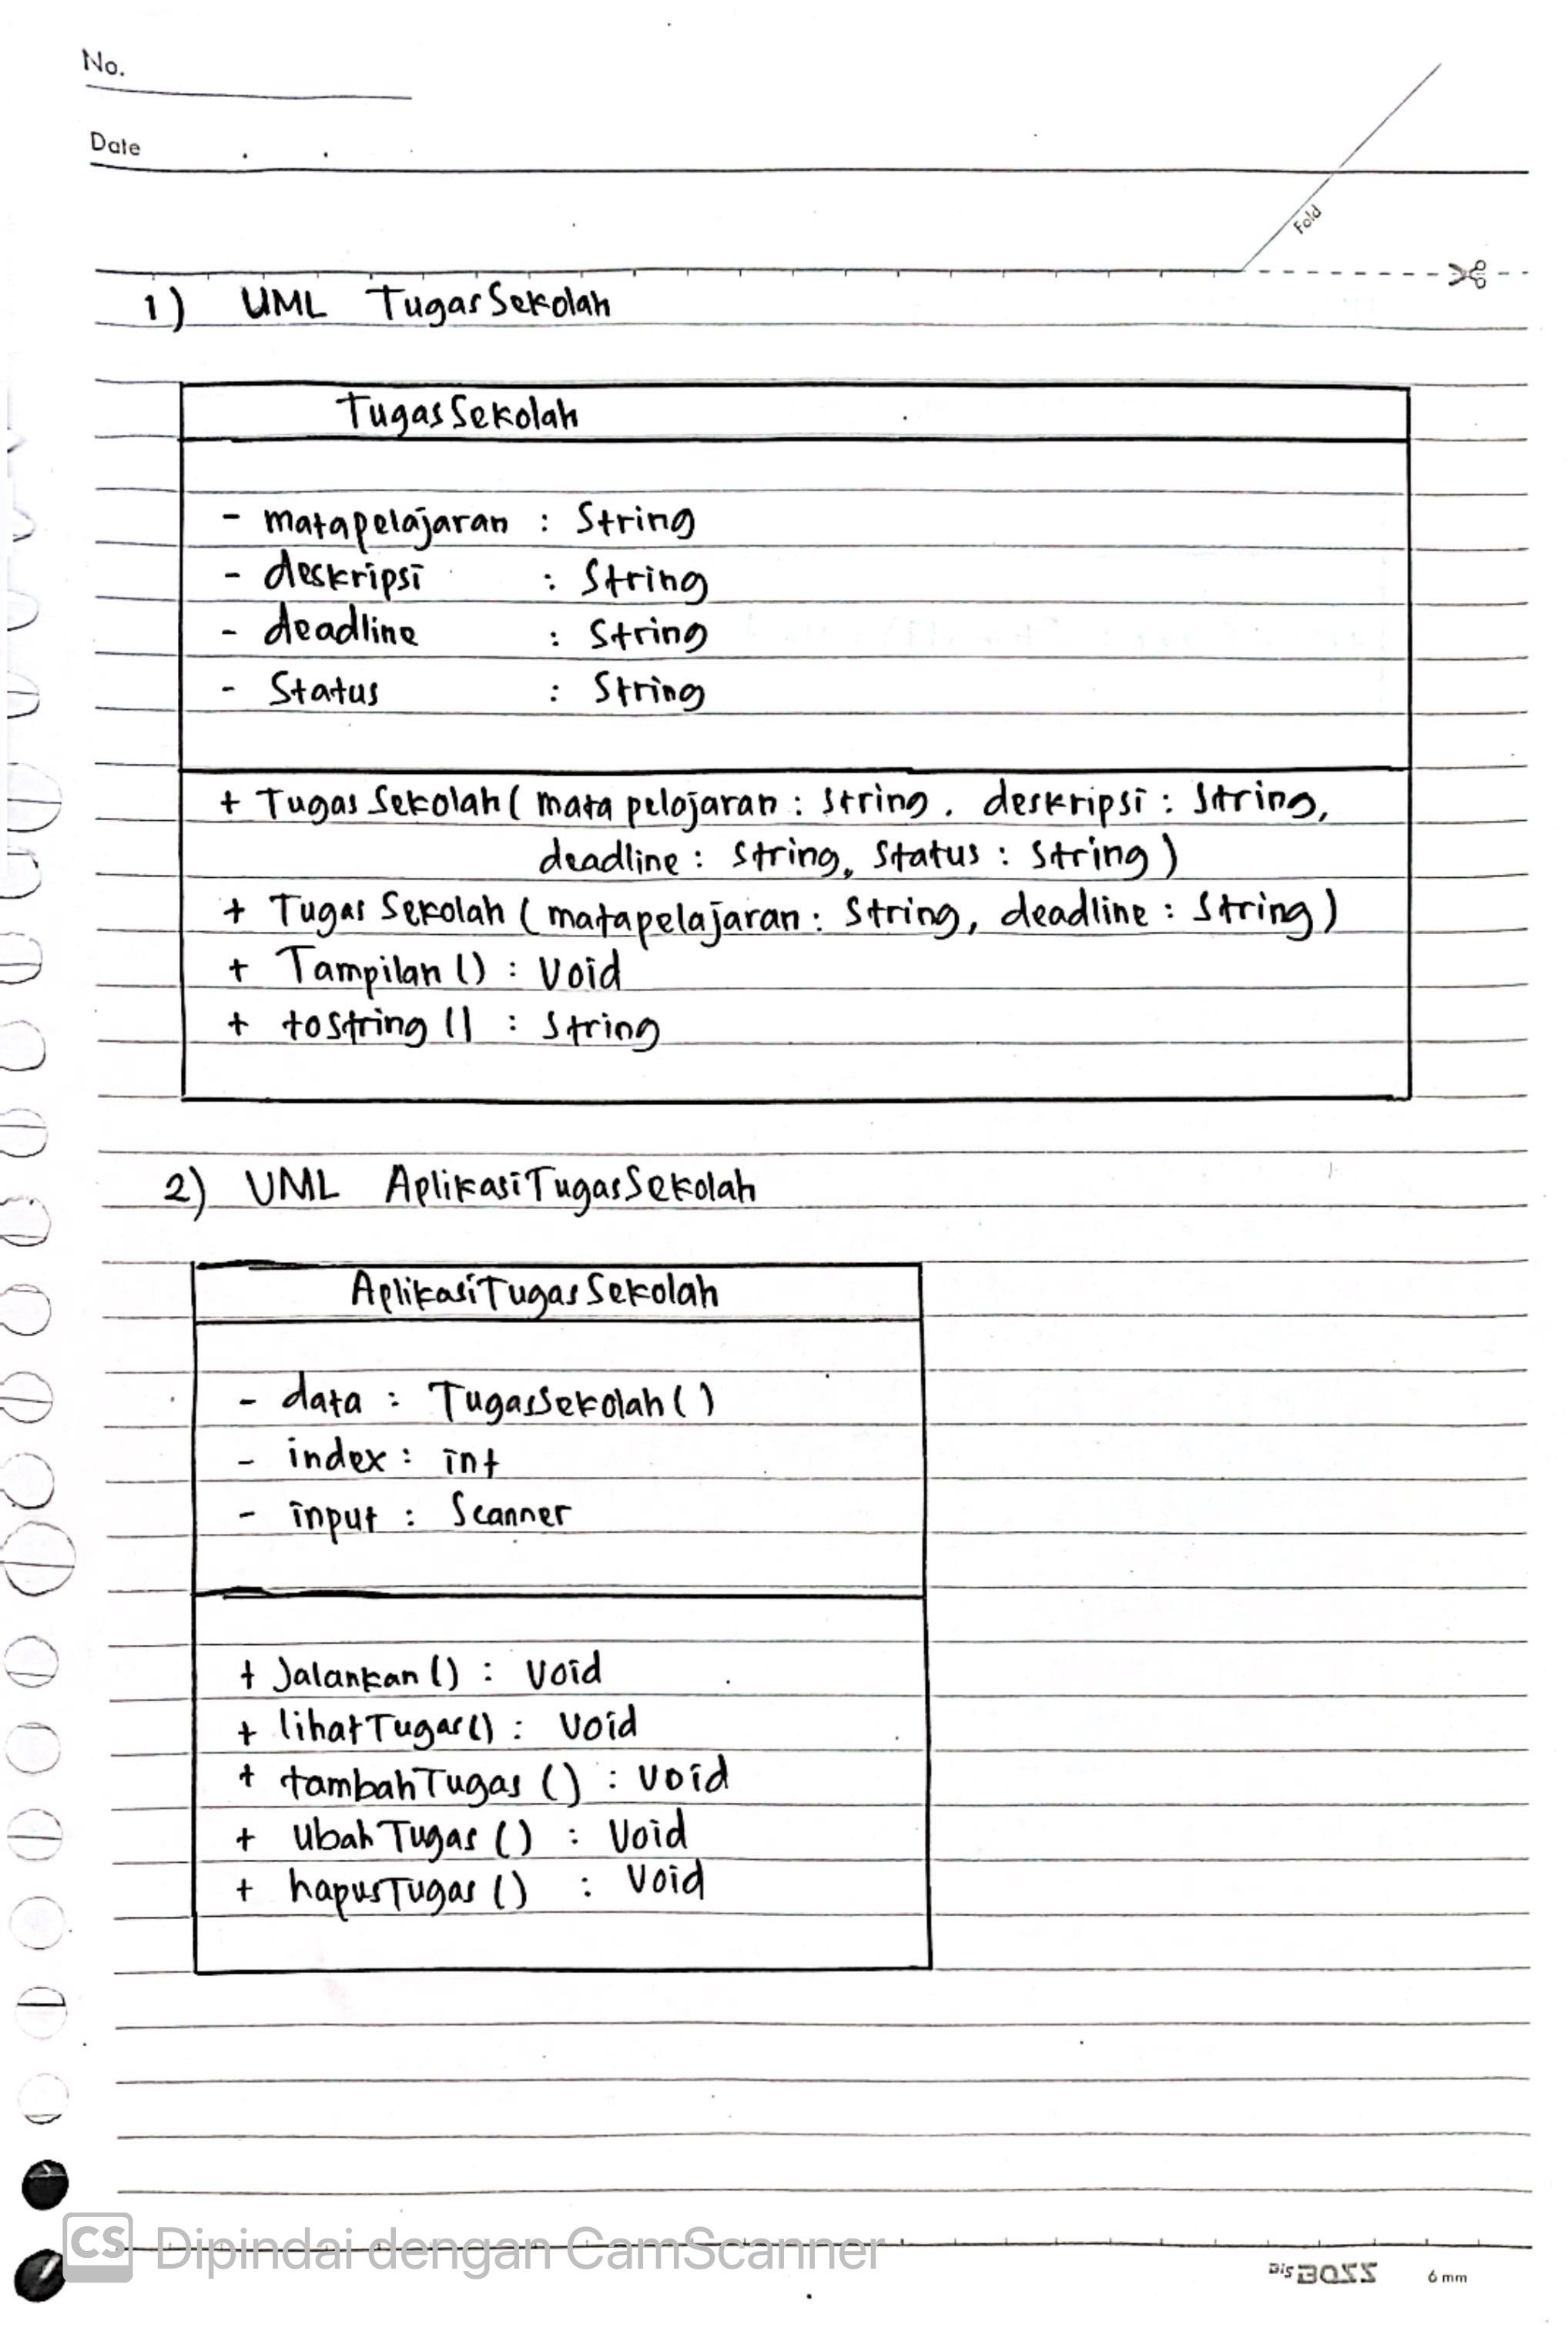 No.
Date
Fold
1) UML TugasSekolah
TugasSekolah
- matapelajaran : String
- deskripsi : String
- deadline : String
- Status : String
+ TugasSekolah( mata pelajaran : String, deskripsi : String,
deadline : String, Status : String )
+ Tugas Sekolah ( matapelajaran : String, deadline : String )
+ Tampilan () : Void
+ toString () : String
2) UML AplikasiTugasSekolah
AplikasiTugasSekolah
- data : TugasSekolah ( )
- index : int
- input : Scanner
+ Jalankan () : Void
+ lihatTugas() : Void
+ tambahTugas () : Void
+ Ubah Tugas () : Void
+ hapusTugas () : Void
CS Dipindai dengan CamScanner
Big BOSS 6 mm